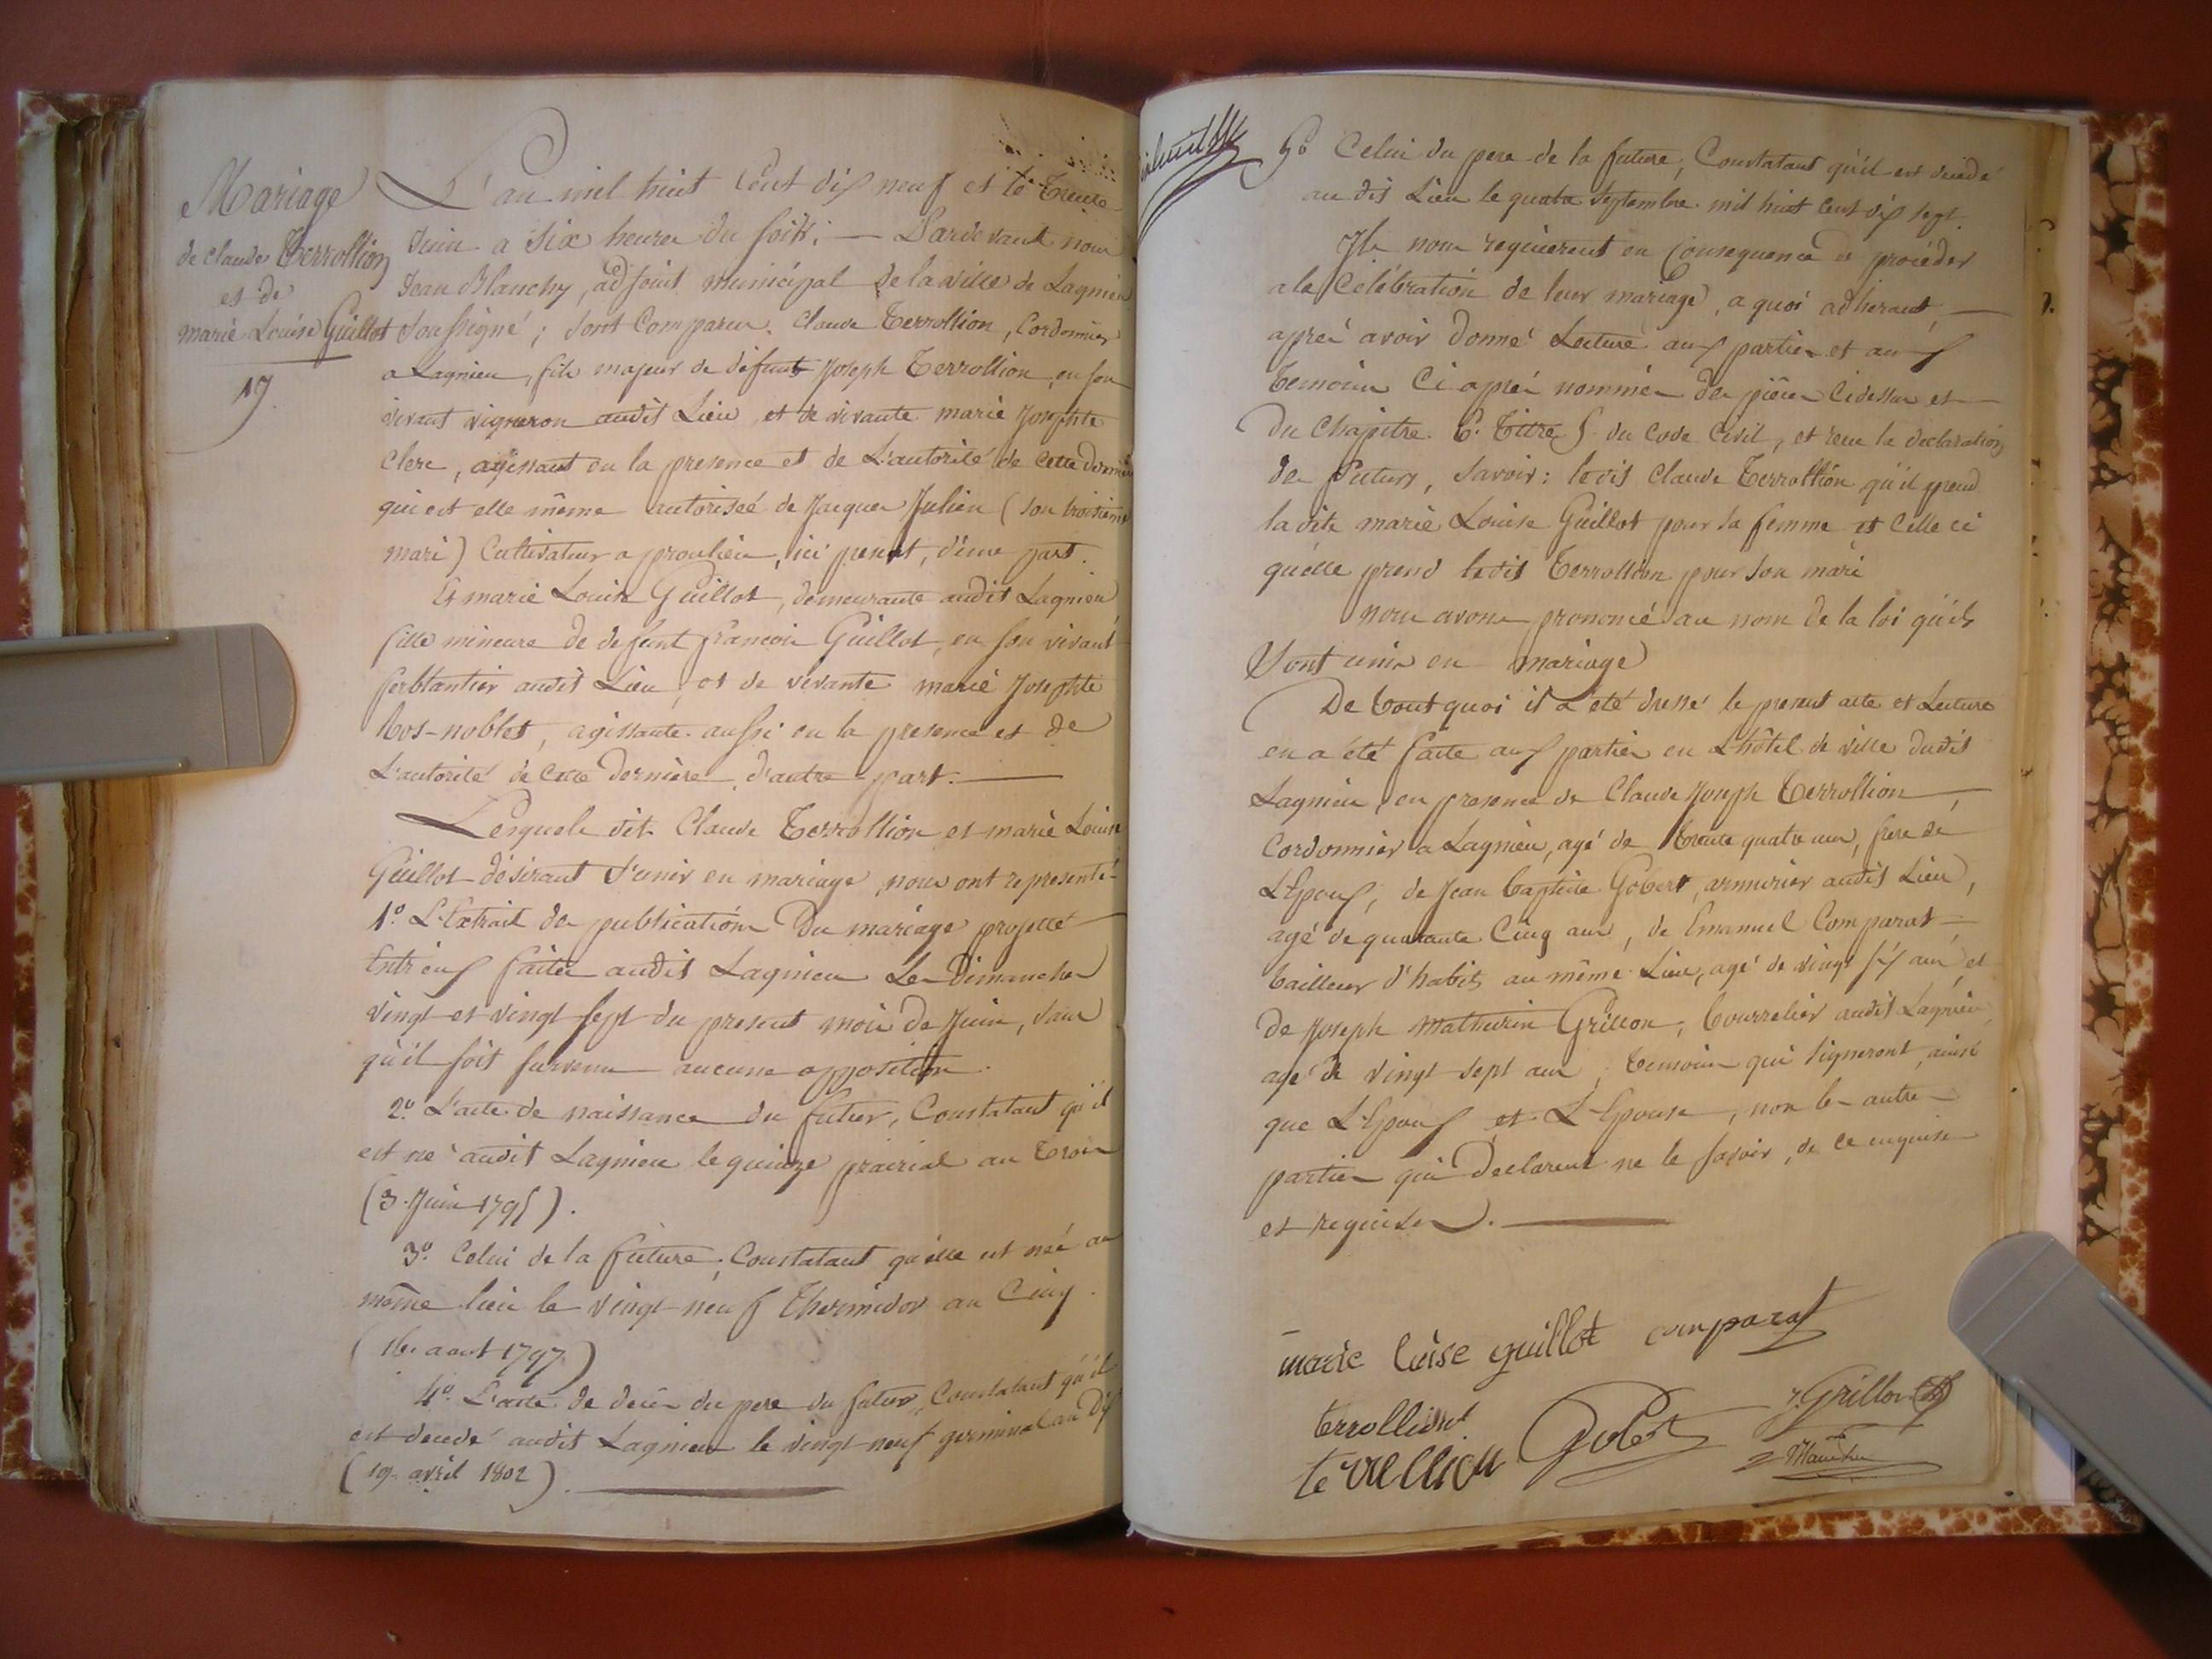 Mariage
de claude Terrollion
et de
marie Louise Guillot
19.
L'an mil huit Cent dix neuf et le Trente
Juin a Six heures du soir; — Pardevant nous
Jean Blanchy, adjoint municipal de la ville de Lagnieu
soussigné; sont Comparus. Claude Terrollion, Cordonnier
a Lagnieu, fils majeur de défunt Joseph Terrollion, en son
vivant vigneron audit Lieu, et de vivante marie Josephte
Clerc, agissant en la presence et de L'autorité de cette derniere
qui est elle même autorisée de Jacques Julien (son troisieme
mari) Cultivateur a proulieu, ici present, d'une part.
Et marie Louise Guillot, demeurante audit Lagnieu
fille mineure de defunt françois Guillot, en son vivant
ferblantier audit Lieu, et de vivante marie Josephte
bos-noblet, agissante aussi en la presence et de
L'autorité de cette derniere, d'autre part. —
Lesquels dit Claude Terrollion et marie Louise
Guillot désirant s'unir en mariage, nous ont représenté
1º. L'Extrait des publications Du mariage projetté
Entr'eux faites audit Lagnieu Les Dimanches
vingt et vingt sept du present mois de Juin, sans
qu'il soit survenu aucune opposition.
2º. L'acte de naissance du futur, Constatant qu'il
est né audit Lagnieu le quinze prairial an Trois
(3. Juin 1795).
3º. Celui de la future, Constatant qu'elle est née au
même lieu le vingt-neuf Thermidor an Cinq.
(16. aout 1797)
4º. L'acte de decès du pere du futur, Constatant qu'il
est decedé audit Lagnieu le vingt-neuf germinal an Dix
(19. avril 1802). —
5º Celui du pere de la future, Constatant qu'il est decedé
au dit Lieu le quatre Septembre mil huit Cent dix sept.
Ils nous requierent en Consequence de procéder
a la Célébration de leur mariage, a quoi adherant, —
après avoir donné Lecture aux parties et aux
temoins Ci après nommés des pièces Cidessus et —
Du Chapitre 6. Titre 5. du Code Civil, et recu la declaration
des Futurs, Savoir: ledit Claude Terrollion qu'il prend
la dite marie Louise Guillot pour sa femme et Celle ci
qu'elle prend ledit Terrollion pour son mari
nous avons prononcé au nom de la loi qu'ils
Sont unis en mariage
De tout quoi il a été dressé le present acte et Lecture
en a été faite aux parties en L'hôtel de ville dudit
Lagnieu, en presence de Claude Joseph Terrollion —,
Cordonnier a Lagnieu, agé de trente quatre ans, frere de
L'Epoux, de Jean baptiste Gobert, armurier audit Lieu,
agé de quarante Cinq ans, de Emanuel Comparat —
tailleur d'habits au même Lieu, agé de vingt six ans et
de Joseph Mathurin Grillon, bourrelier audit Lagnieu,
agé de vingt sept ans, temoins qui signeront, ainsi
que L'Epoux et L'Epouse, non les autres
parties qui declarent ne le savoir, de ce enquises
et requises. —
marie luise guillot comparat
terrollion
terrellion Gobert J. Grillon